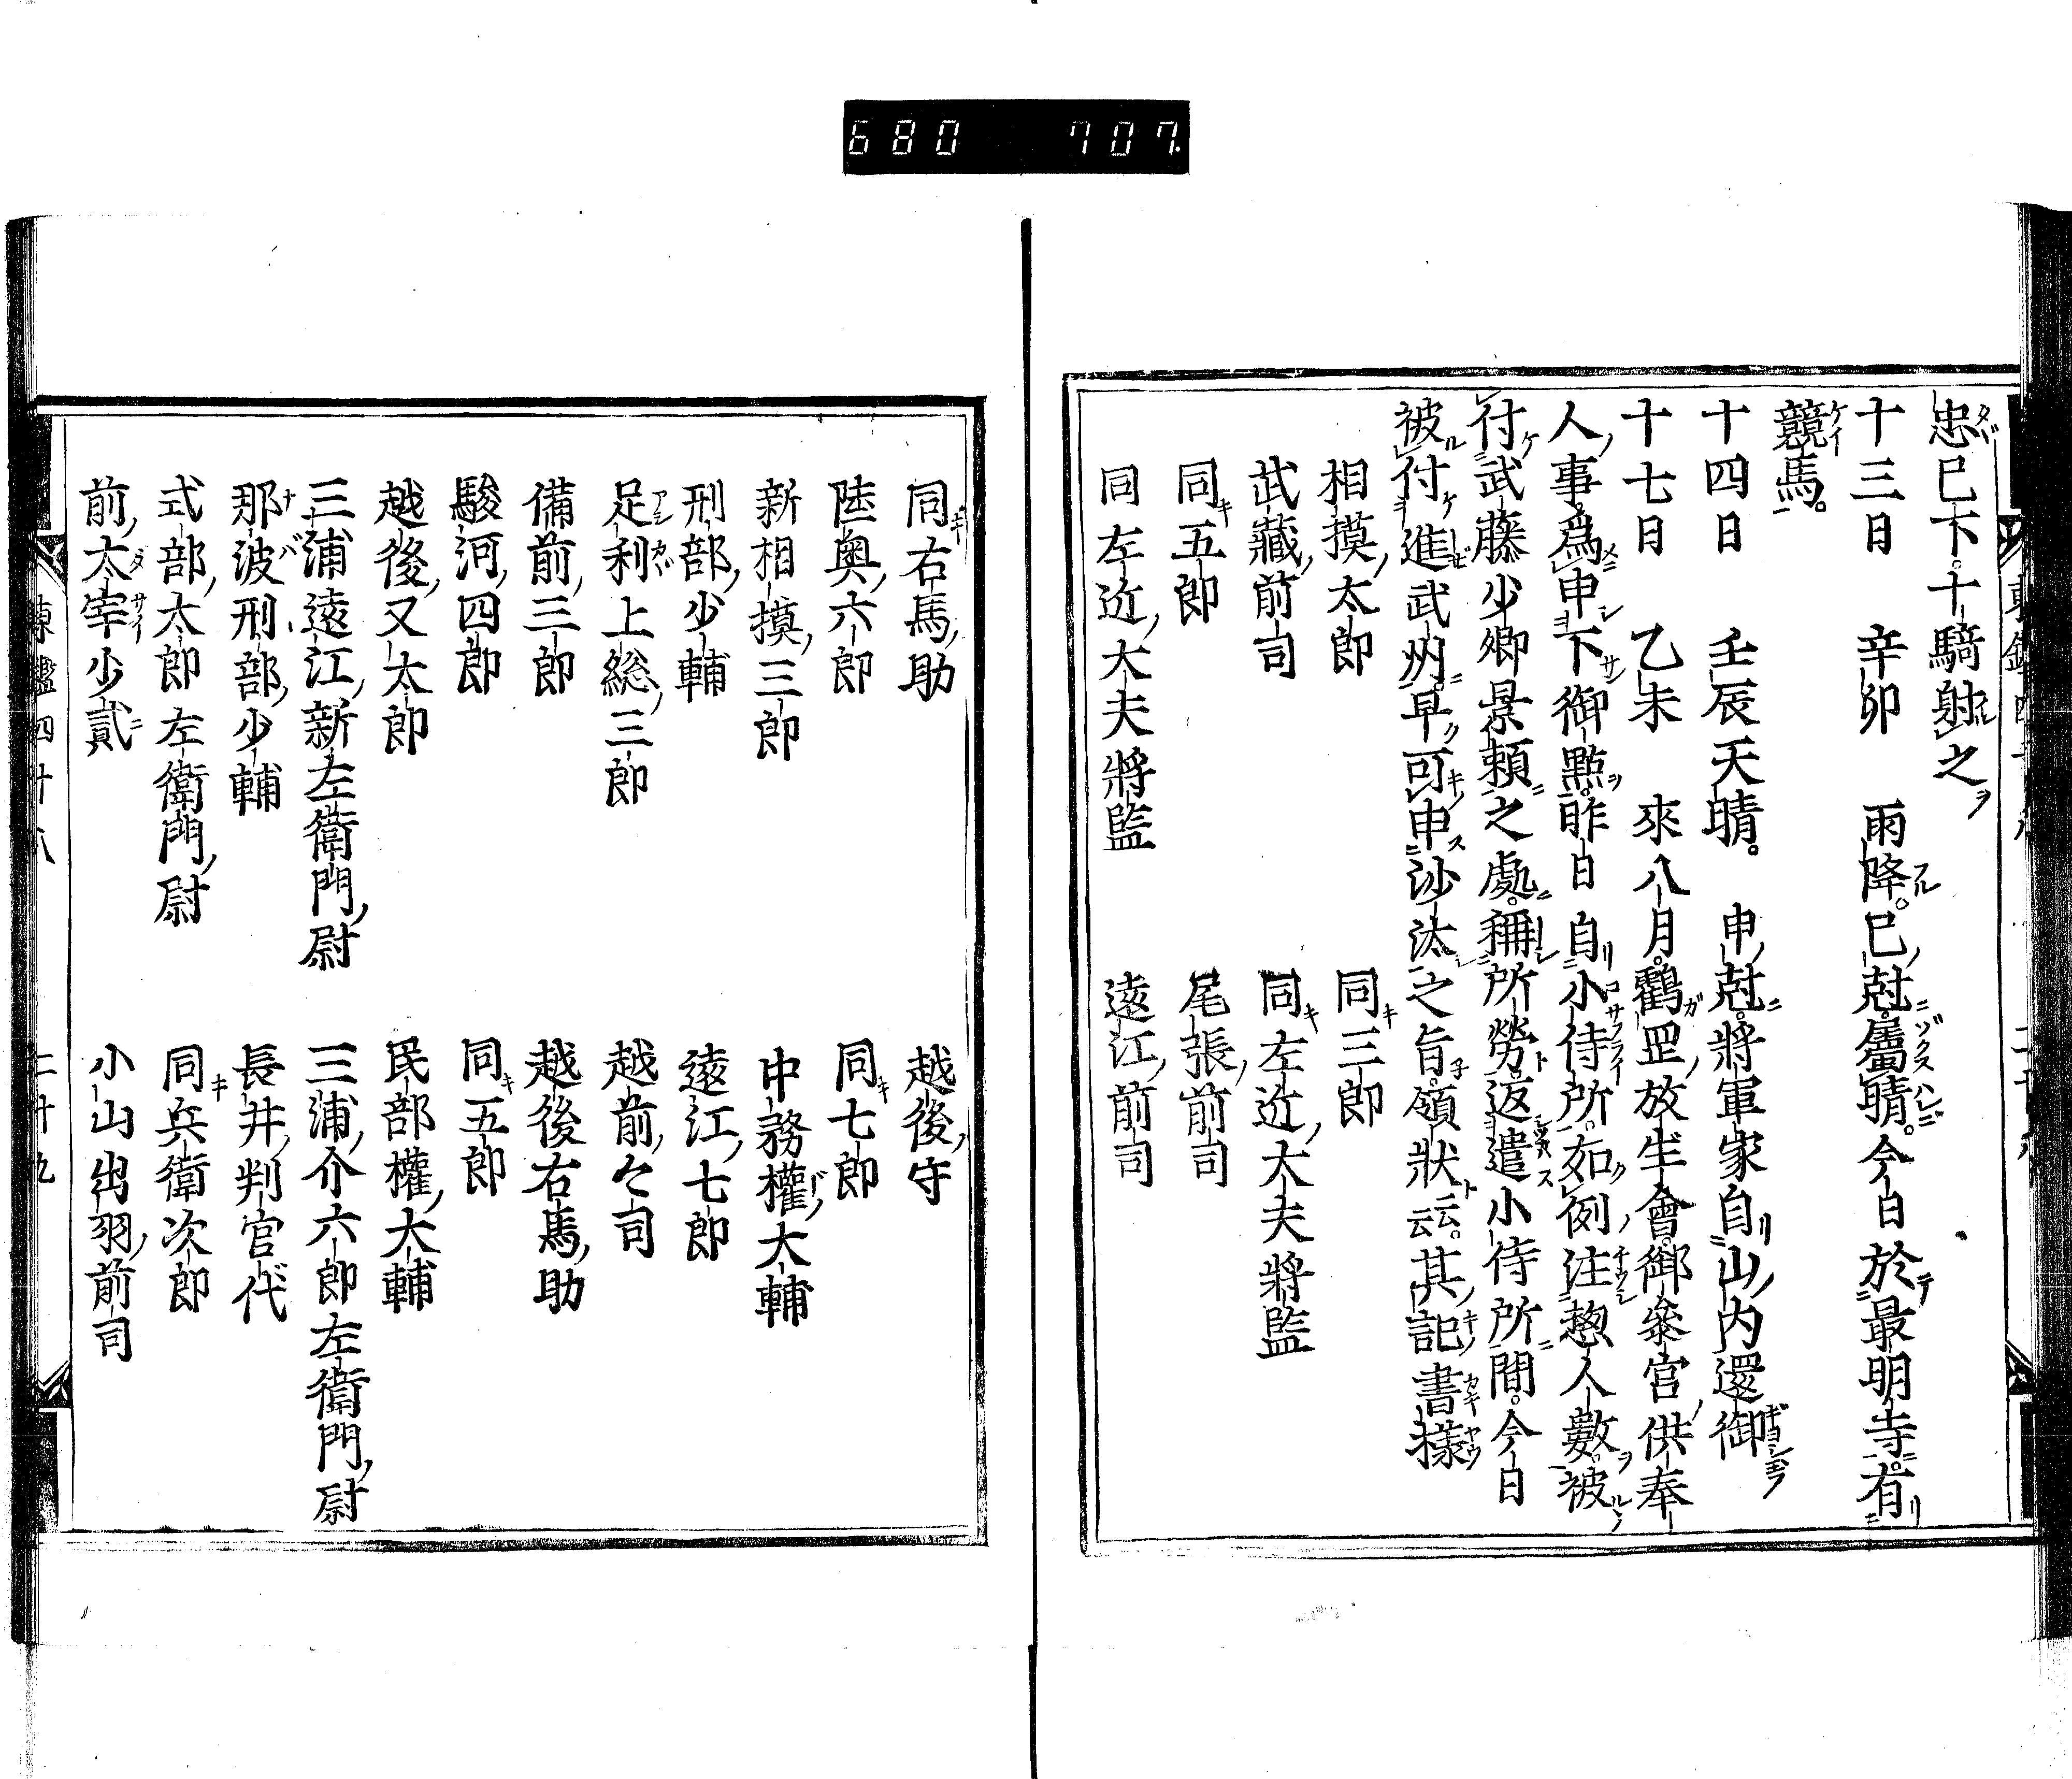 680 707.
忠已下。十騎射之
十三日 辛卯 雨降。巳尅。屬晴。今日於最明寺。有
競馬。
十四日 壬辰天晴。 申尅。將軍家自山内還御
十七日 乙未 來八月。鶴罡放生會。御參宮供奉
人事。爲申下御點。昨日自小侍所。如例注惣人數。被
付武藤少卿景頼之處。稱所勞。返遣小侍所間。今日
被付進武州。早可申沙汰之旨。領状云云。其記書樣
相摸太郎 同三郎
武藏前司 同左近大夫將監
同五郎 尾張前司
同左近大夫將監 遠江前司
同右馬助 越後守
陸奥六郎 同七郎
新相摸三郎 中務權大輔
刑部少輔 遠江七郎
足利上総三郎 越前々司
備前三郎 越後右馬助
駿河四郎 同五郎
越後又太郎 民部權大輔
三浦遠江新左衛門尉 三浦介六郎左衛門尉
那波刑部少輔 長井判官代
式部太郎左衛門尉 同兵衛次郎
前太宰少貳 小山出羽前司